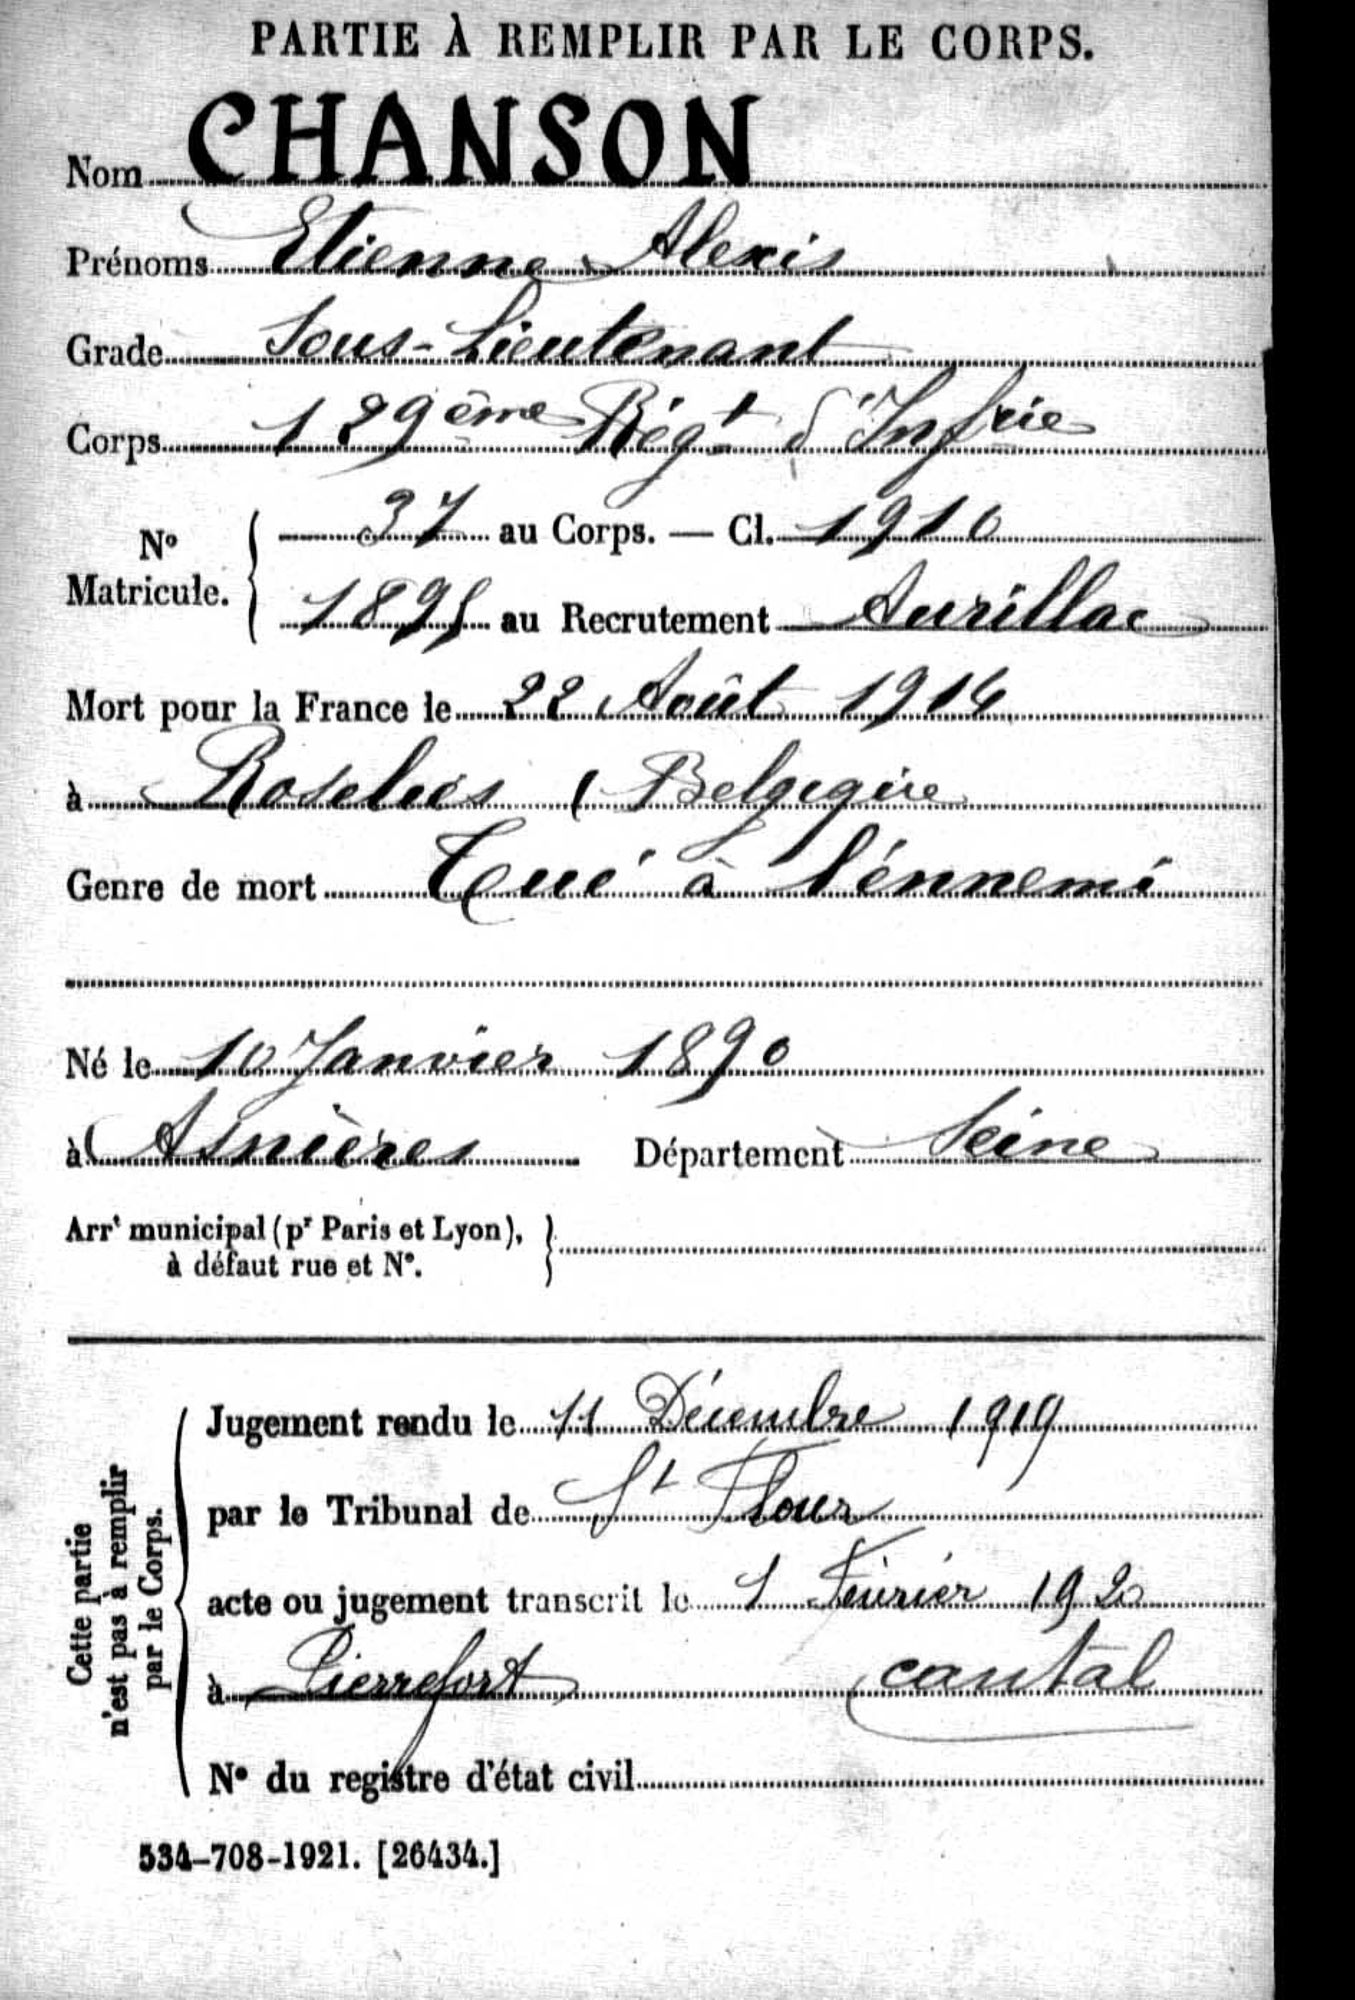 PARTIE À REMPLIR PAR LE CORPS.
Nom CHANSON
Prénoms Etienne Alexis
Grade Sous-Lieutenant
Corps 129ème Régt d'Infrie
No Matricule. 37 au Corps. — Cl. 1910
1895 au Recrutement Aurillac
Mort pour la France le 22 Août 1914
à Roselies (Belgique
Genre de mort Tué à l'énnemi
Né le 10 Janvier 1890
à Asnières Département Seine
Arrt municipal (pr Paris et Lyon), à défaut rue et No.
Cette partie n'est pas à remplir par le Corps.
Jugement rendu le 11 Décembre 1919
par le Tribunal de St Flour
acte ou jugement transcrit le 1 Février 1920
à Pierrefort cantal
No du registre d'état civil
534-708-1921. [26434.]